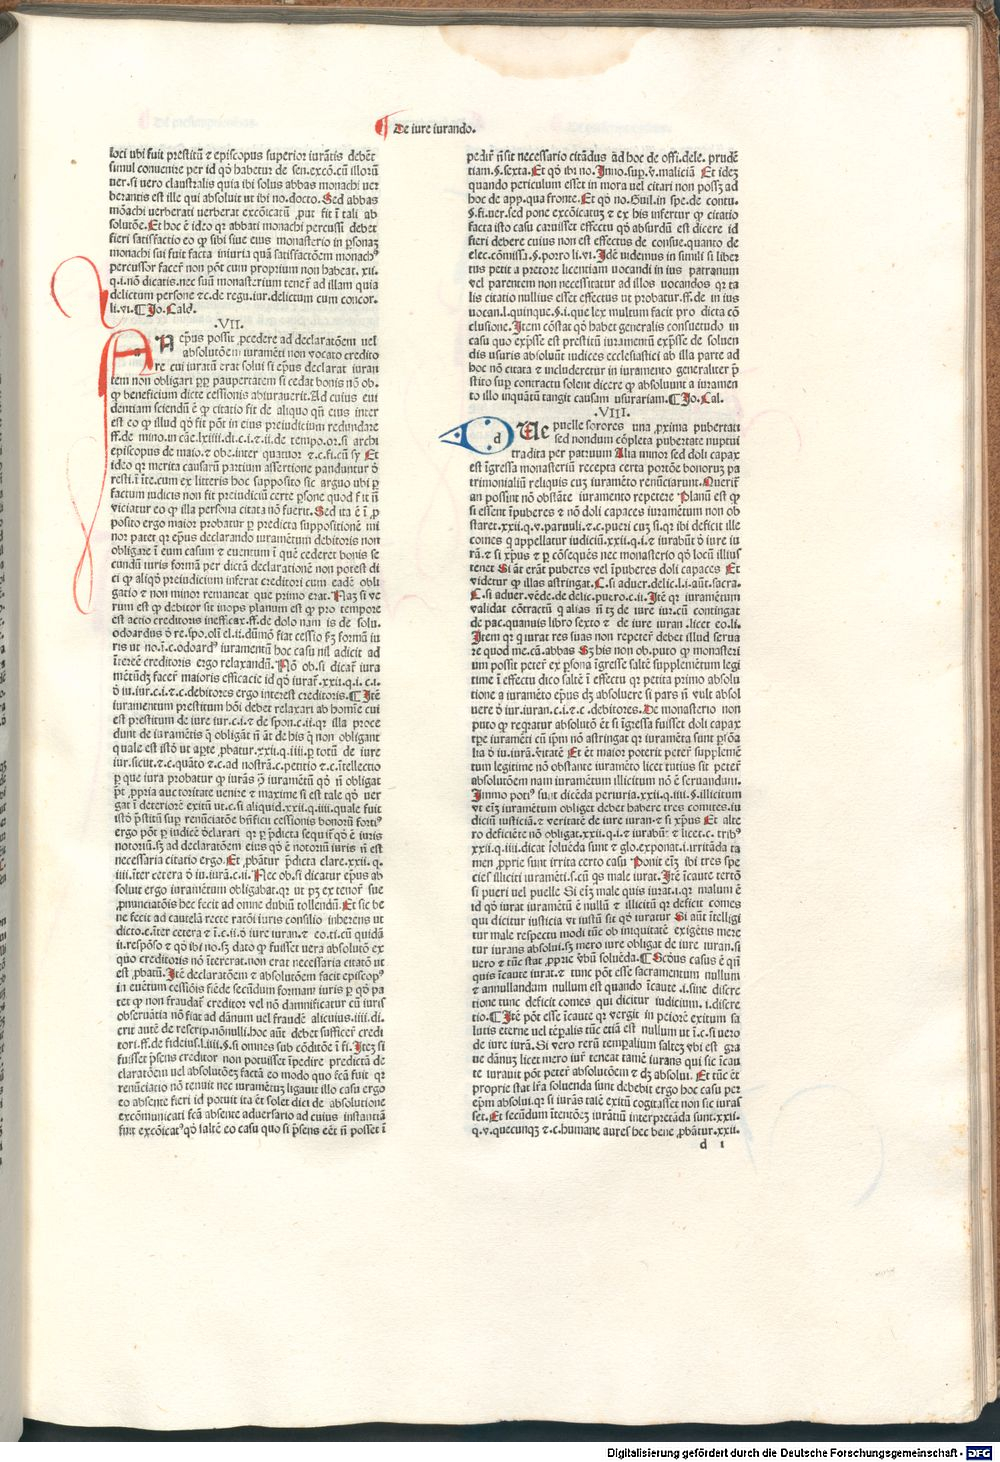 De iure iurando.
loci ubi fuit prestitū ⁊ episcopus superior iurātis debēt
simul conuenire per id qō habetur de sen.excō.cū illorū
uer.si uero claustralis quia ibi solus abbas monachi uer
berantis est ille qui absoluit ut ibi no.docto. Sed abbas
mōachi uerberati uerberat excōicatū ꝓut fit ī tali ab
solutōe. Et hoc ē ideo qr abbati monachi percussi debet
fieri satisfactio eo ꝙ sibi siue eius monasterio in ꝑsonaʒ
monachi sui fuit facta iniuria quā satisfactōem monachꝰ
percussor facer̄ non pōt cum proprium non habeat. xii.
q.i.nō dicatis.nec suū monasterium tenet̄ ad illam quia
delictum persone ⁊c.de regu.iur.delictum cum concor.
li.vi. ¶ Jo.Cald.
.VII.
a N ep̄us possit ꝓcedere ad declaratōem uel
absolutōem iuramēti non vocato credito
re cui iuratū erat solui si ep̄us declarat iuran
tem non obligari ꝓpꝑ paupertatem si cedat bonis nō ob.
ꝙ beneficium dicte cessionis abiurauerit.Ad cuius eui
dentiam sciendū ē ꝙ citatio fit de aliquo qn̄ eius inter
est eo ꝙ illud qō fit pōt in eius preiudicium redundare
ff.de mino.in cāe.lxiiii.di.c.i.⁊.ii.de tempo.or.si archi
episcopus de maio.⁊ obe.inter quatuor ⁊.c.fi.cū sy Et
ideo qr merita causarū partium assertione panduntur ō
resti.ī īte.cum ex litteris hoc supposito sic arguo ubi ꝑ
factum iudicis non fit preiudiciū certe ꝑsone quod fit n̄
viciatur eo ꝙ illa persona citata nō fuerit. Sed ita ē ī ꝓ
posito ergo maior probatur ꝑ predicta suppositionē mi
nor patet qr ep̄us declarando iuramentū debitoris non
obligare ī eum casum ⁊ euentum ī quē cederet bonis se
cundū iuris formā per dictā declarationē non potest di
ci ꝙ aliqō preiudicium inferat creditori cum eadē obli
gatio ⁊ non minor remaneat que primo erat. Naʒ si ve
rum est ꝙ debitor sit inops planum est ꝙ pro tempore
est actio creditoris inefficax.ff.de dolo nam is de solu.
odoardus ō re.spo.oli el.ii.dūmō fiat cessio fʒ formā iu
ris ut no.ī.c.odoardꝰ iuramentū hoc casu nil adicit ad
īterēē creditoris ergo relaxandū. Nō ob.si dicat̄ iura
mētūdʒ facer̄ maioris efficacie id qō iurat̄.xxii.q.i.c.i.
ō iu.iur.c.i.⁊.c.debitores ergo interest creditoris. ¶ Itē
iuramentum prestitum hōi debet relaxari ab homīe cui
est prestitum de iure iur.c.i.⁊ de spon.c.ii.qr illa proce
dunt de iuramētis q̄ obligāt n̄ āt de his q̄ non obligant
quale est istō ut aꝑte ꝓbatur.xxii.q.iiii.ꝑ totū de iure
iur.sicut.⁊.c.quāto ⁊.c.ad nostrā.c.petitio ⁊.c.ītellectio
ꝑ que iura probatur ꝙ iurās ꝯ iuramētū qō n̄ obligat
pt̄ ꝓpria auctoritate uenire ⁊ maxime si est tale qō ver
gat ī deteriorē exitū ut.c.si aliquid.xxii.q.iiii.quale fuit
istō ꝑstitū suꝑ renūciatōe bn̄ficii cessionis bonorū fortiꝰ
ergo pōt ꝑ iudicē ōclarari qr ꝑ ꝑdicta sequit̄ qō ē iuris
notoriū.sʒ ad declaratōem eius qō ē notoriū iuris n̄ est
necessaria citatio ergo. Et ꝓbātur ꝑdicta clare.xxii.q.
iiii.īter cetera ō iu.iurā.c.ii. Nec ob.si dicatur ep̄us ab
soluit ergo iuramētum obligabat.qr ut pʒ ex tenor̄ sue
ꝓnunciatōis hec fecit ad omne dubiū tollendū. Et sic be
ne fecit ad cautelā recte ratōi iuris consilio inherens ut
dicto.c.īter cetera ⁊ ī.c.ii.ō iure iuran.⁊ eo.ti.cū quidā
ii.respōso ⁊ qō ibi no.sʒ dato ꝙ fuisset uera absolutō ex
quo creditoris nō īterērat.non erat necessaria citatō ut
est ꝓbatū. Itē declaratōem ⁊ absolutōem facit episcopꝰ
in euētum cessiōis fiēde secūdum formam iuris ꝑ qō pa
tet ꝙ non fraudat̄ creditor vel nō damnificatur cū iuris
obseruātia nō fiat ad dānum vel fraudē alicuius.iiii.di.
erit autē de rescrip.nōnulli.hoc aūt debet sufficer̄ credi
tori.ff.de fideius.l.iiii.§.si omnes sub cōditōe ī fi. Iteʒ si
fuisset ꝑsens creditor non potuisset īpedire predictā de
claratōem uel absolutōeʒ factā eo modo quo fcā̄ fuit qr
renūciatio nō tenuit nec iuramētuʒ ligauit illo casu ergo
eo absente fieri id potuit ita ēt solet dici de absolutione
excōmunicati fcā absente aduersario ad cuius instantiā
fuit excōicatꝰ qō saltē eo casu quo si ꝑsens eēt n̄ posset ī
pedir̄ n̄sit necessario citādus ad hoc de offi.dele. prudē
tiam.§.sexta. Et qō ibi no. Inno.suꝑ.v.maliciā Et ideʒ
quando periculum esset in mora uel citari non possʒ ad
hoc de app.qua fronte. Et qō no.Guil.in spe.de contu.
§.fi.uer.sed pone excōicatuʒ ⁊ ex his infertur ꝙ citatio
facta isto casu caruisset effectu qō absurdū est dicere id
fieri debere cuius non est effectus de consue.quanto de
elec.cōmissa.§.porro li.vi. Idē uidemus in simili si liber
tus petit a pretore licentiam uocandi in ius patranum
vel parentem non necessitatur ad illos uocandos qr ta
lis citatio nullius esset effectus ut probatur.ff.de in ius
uocan.l.quinque.§.i.que lex multum facit pro dicta cō
clusione. Item cōstat qō habet generalis consuetudo in
casu quo exp̄sse est prestitū iuramentū exp̄sse de soluen
dis usuris absoluūt iudices ecclesiastici ab illa parte ad
hoc nō citata ⁊ includeretur in iuramento generaliter ꝑ
stito suꝑ contractu solent dicere ꝙ absoluunt a iuramen
to illo inquātū tangit causam usurariam. ¶ Jo.Cal.
.VIII.
d Ue puelle sorores una ꝓxima pubertati
sed nondum cōpleta pubertate nuptui
tradita per patruum Alia minor sed doli capax
est īgressa monasteriū recepta certa portōe bonoruʒ pa
trimonialiū reliquis cuʒ iuramēto renūciarunt. Querit̄
an possint nō obstāte iuramento repetere Planū est ꝙ
si essent īpuberes ⁊ nō doli capaces iuramētum non ob
staret.xxii.q.v.paruuli.⁊.c.pueri cuʒ si.qr ibi deficit ille
comes q̄ appellatur iudiciū.xxii.q.i.⁊ iurabūt ō iure iu
rā.⁊ si xp̄us ⁊ ꝑ cōsequēs nec monasterio qō locū illius
tenet Si āt erāt puberes vel īpuberes doli capaces Et
videtur ꝙ illas astringat. C.si aduer.delic.l.i.aūt.sacra.
C.si aduer.vēde.de delic.puero.c.ii. Itē qr iuramētum
validat cōtractū q̄ alias n̄ tʒ de iure iur.cū contingat
de pac.quanuis libro sexto ⁊ de iure iuran.licet eo.li.
Item qr q̄ iurat res suas non repeter̄ debet illud serua
re quod me.cā.abbas Sʒ his non ob.puto ꝙ monasteri
um possit peter̄ ex ꝑsona īgresse saltē supplemētum legi
time ī effectu dico saltē ī effectu qr petita primo absolu
tione a iuramēto ep̄us dʒ absoluere si pars n̄ vult absol
uere ō iur.iuran.c.i.⁊.c.debitores. De monasterio non
puto ꝙ reqratur absolutō ēt si īgressa fuisset doli capax
tꝑe iuramēti cū ipm nō astringat qr iuramēta sunt ꝑsōa
lia ō iu.iurā.vitatē Et ēt maior poterit peter̄ supplemē
tum legitime nō obstante iuramēto licet tutius sit peter̄
absolutōem nam iuramētum illicitum nō ē seruandum.
Immo potiꝰ sunt dicēda periuria.xxii.q.iiii.§.illicitum
vt eīʒ iuramētum obliget debet habere tres comites.iu
diciū iusticiā.⁊ veritatē de iure iuran.⁊ si xp̄us Et alte
ro deficiēte nō obligat.xxii.q.i.⁊ iurabūt ⁊ licet.c. tribꝰ
xxii.q.iii.dicat soluēda sunt ⁊ glo.exponat.i.irritāda ta
men ꝓprie sunt irrita certo casu Ponit eīʒ ibi tres spe
cies illiciti iuramēti.s.cū q̄s male iurat. Itē īcaute tertō
si pueri vel puelle Si eīʒ male quis iurat.i.qr malum ē
id qō iurat iuramētū ē nullū ⁊ illicitū qr deficit comes
qui dicitur iusticia vt iustū sit qō iuratur Si aūt ītelligi
tur male respectu modi tūc ob iniquitatē exigētis mere
tur iurans absolui.sʒ mero iure obligat de iure iuran.si
vero ⁊ tūc stat ꝓprie ꝟbū soluēda. ¶ Scōus casus ē qn̄
quis īcaute iurat.⁊ tunc pōt esse sacramentum nullum
⁊ annullandam nullum est quando īcaute.i.sine discre
tione tunc deficit comes qui dicitur iudicium.i.discre
tio. ¶ Itē pōt esse īcaute qr vergit in peiorē exitum sa
lutis eterne vel tēꝑalis tūc etiā est nullum ut ī.c.si uero
de iure iurā.Si vero rerū temꝑalium salteʒ vbi est gra
ue dānuʒ licet mero iur̄ teneat tamē iurans qui sic īcau
te iurauit pōt peter̄ absolutōem ⁊ dʒ absolui. Et tūc ēt
proprie stat lr̄a soluenda sunt debebit ergo hoc casu per
ep̄m absolui.qr si iurās talē exitū cogitasset non sic iuras
set. Et secūdum ītentōeʒ iurātiū interpretāda sunt.xxii.
q.v.quecunqʒ ⁊.c.humane aures hec bene ꝓbātur.xxii.
d 1
Digitalisierung gefördert durch die Deutsche Forschungsgemeinschaft - DFG